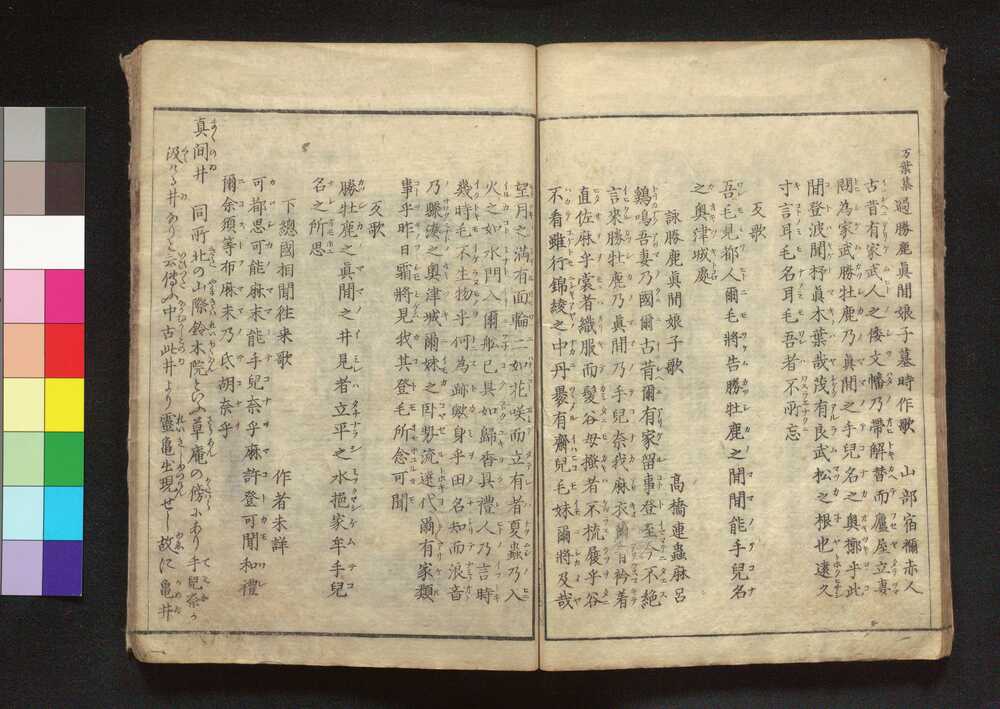 万葉集 過勝鹿眞間娘子墓時作歌 山部宿禰赤人
古昔有家武人之倭文幡乃帶解替而廬屋立妻
問為家武勝牡鹿乃眞間之手兒名之奥槨乎此
間登波聞杼眞木葉哉茂有良武松之根也遠久
寸言耳毛名耳毛吾者不所忘
反歌
吾毛見都人爾毛將告勝牡鹿之間間能手兒名
之奥津城處
詠勝鹿眞間娘子歌 高橋連蟲麻呂
鷄鳴吾妻乃國爾古昔爾有家留事登至今不絶
言來勝牡鹿乃眞間乃手兒奈我麻衣爾青衿着
直佐麻乎裳者織服而髮谷母掻者不梳履乎谷
不看雖行錦綾之中丹裹有齋兒毛妹爾將及哉
望月之滿有面輪二如花咲而立有者夏蟲乃入
火之如水門入爾船己具如歸香具禮人乃言時
幾時毛不生物乎何為跡歟身乎田名知而浪音
乃驟湊之奥津城爾妹之臥勢流遠代爾有家類
事乎昨日霜將見我其登毛所念可聞
反歌
勝牡鹿之眞間之井見者立平之水挹家牟手兒
名之所思
下總國相聞往来歌 作者未詳
可都思可能麻末能手兒奈乎麻許登可聞和禮
爾余須等布麻末乃氐胡奈乎
真間井 同所北の山際鈴木院といふ草庵の傍にあり手兒奈が
汲ける井ありと云傳ふ中古此井より靈亀出現せし故に亀井